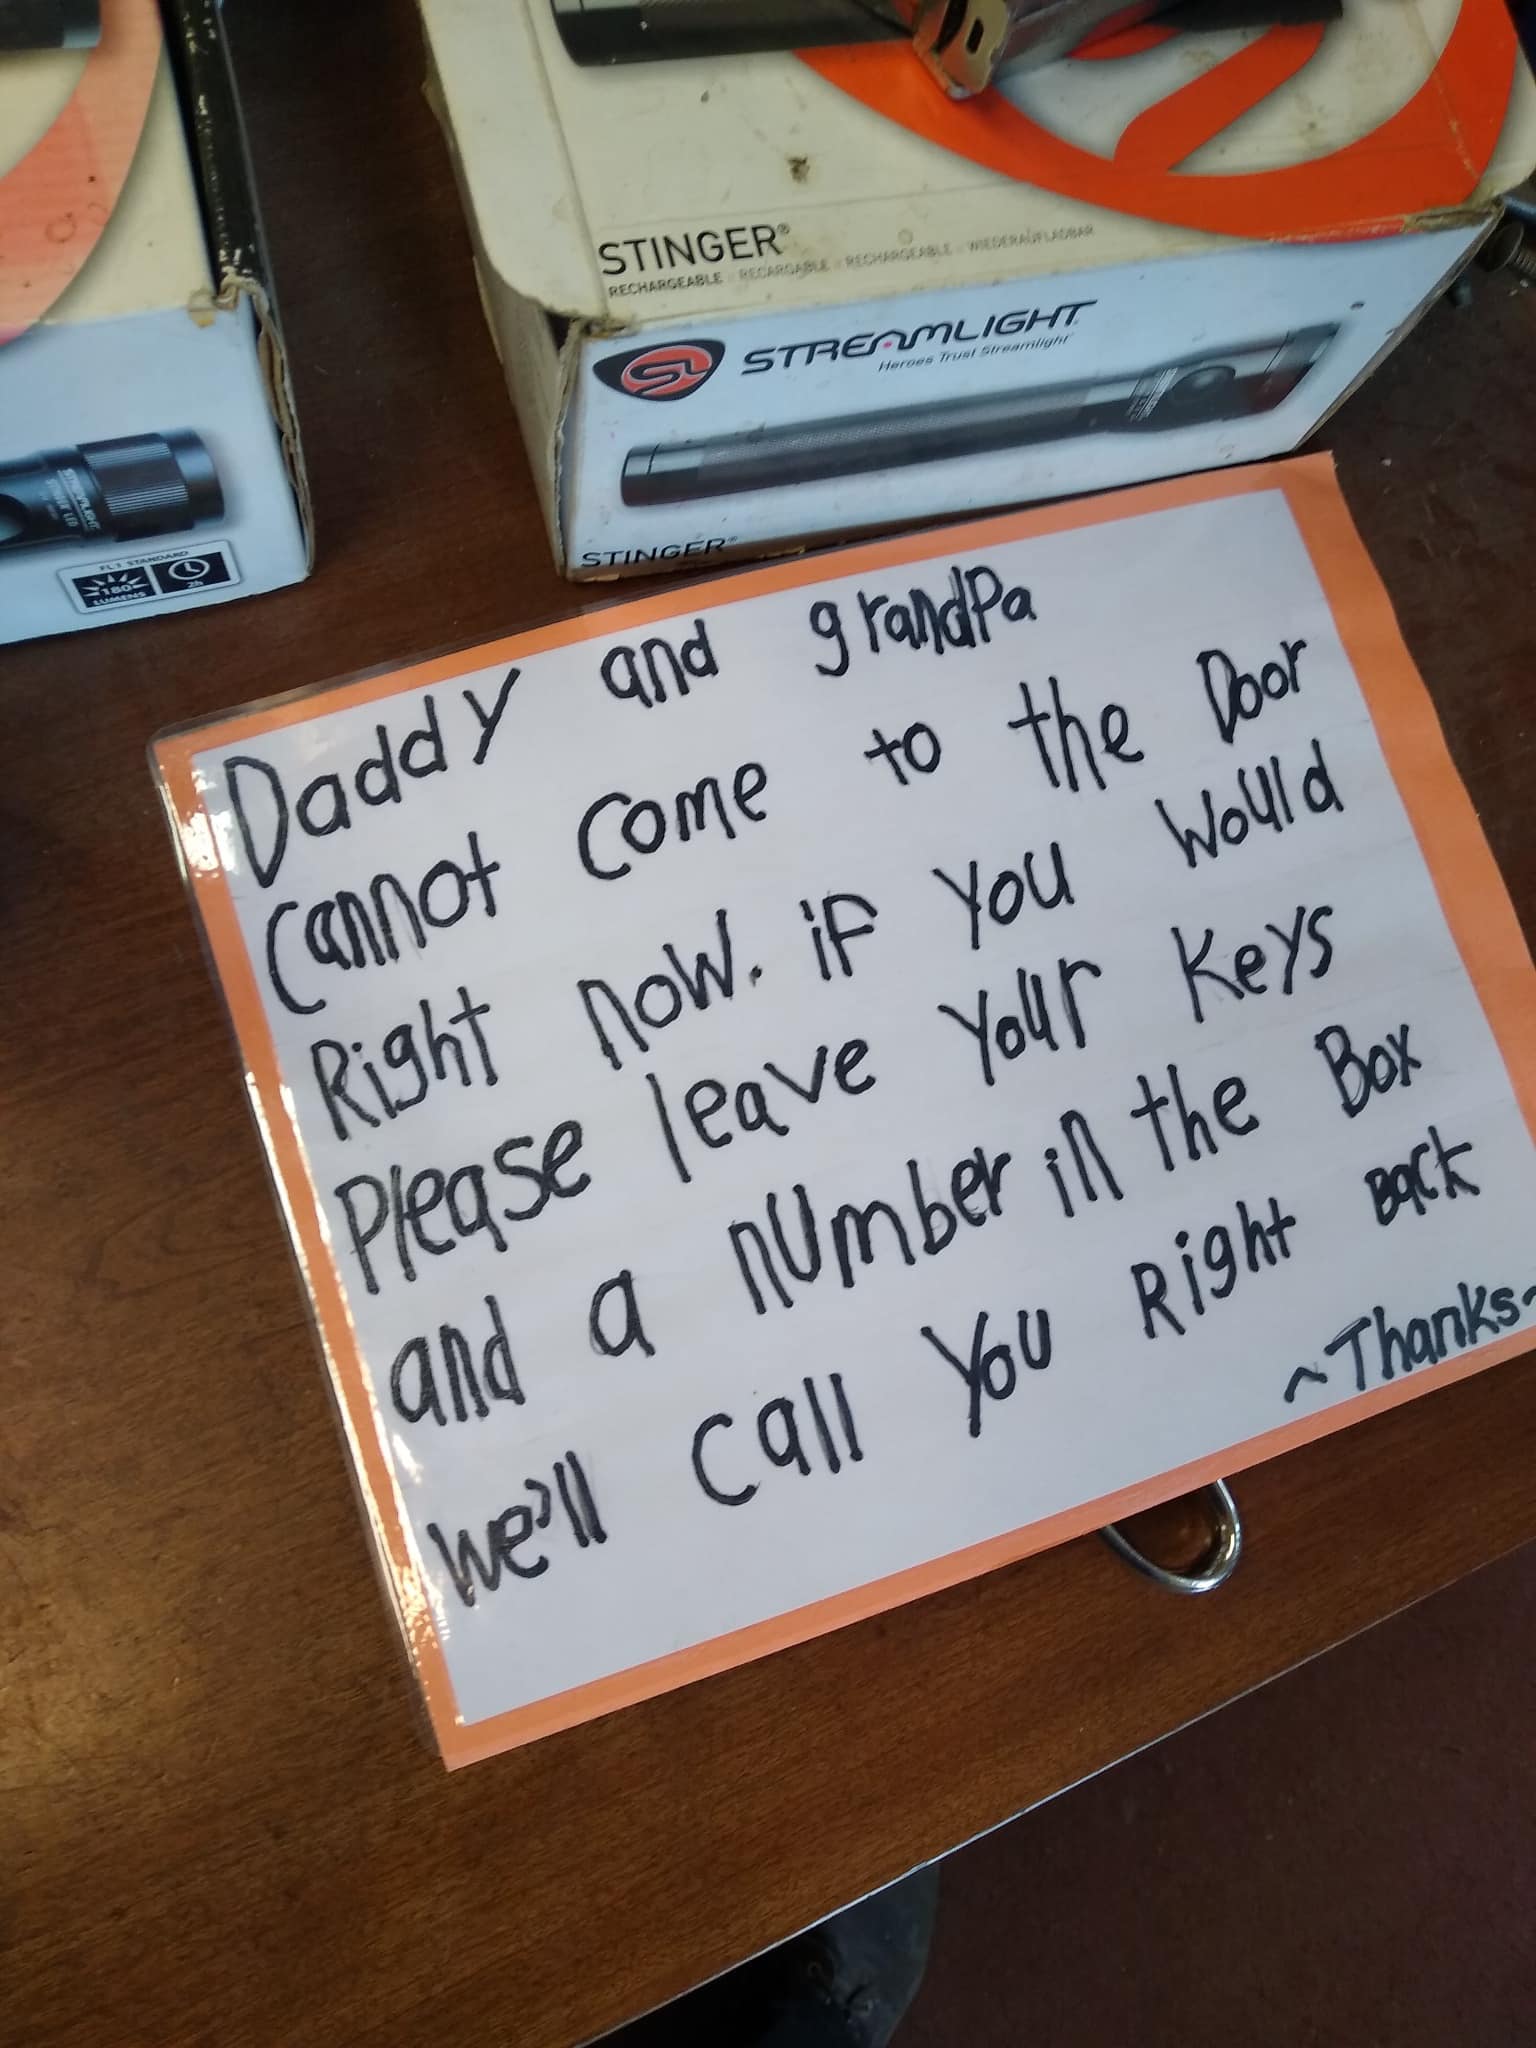 STINGER®
RECHARGEABLE · RECARGABLE · RECHARGEABLE · WIEDERAUFLADBAR
SL STREAMLIGHT®
Heroes Trust Streamlight™
STINGER®
FL 1 STANDARD
180
LUMENS
2h
Daddy and grandPa
cannot come to the Door
Right now. if you would
Please leave your keys
and a number in the Box
we'll call you Right Back
~Thanks~